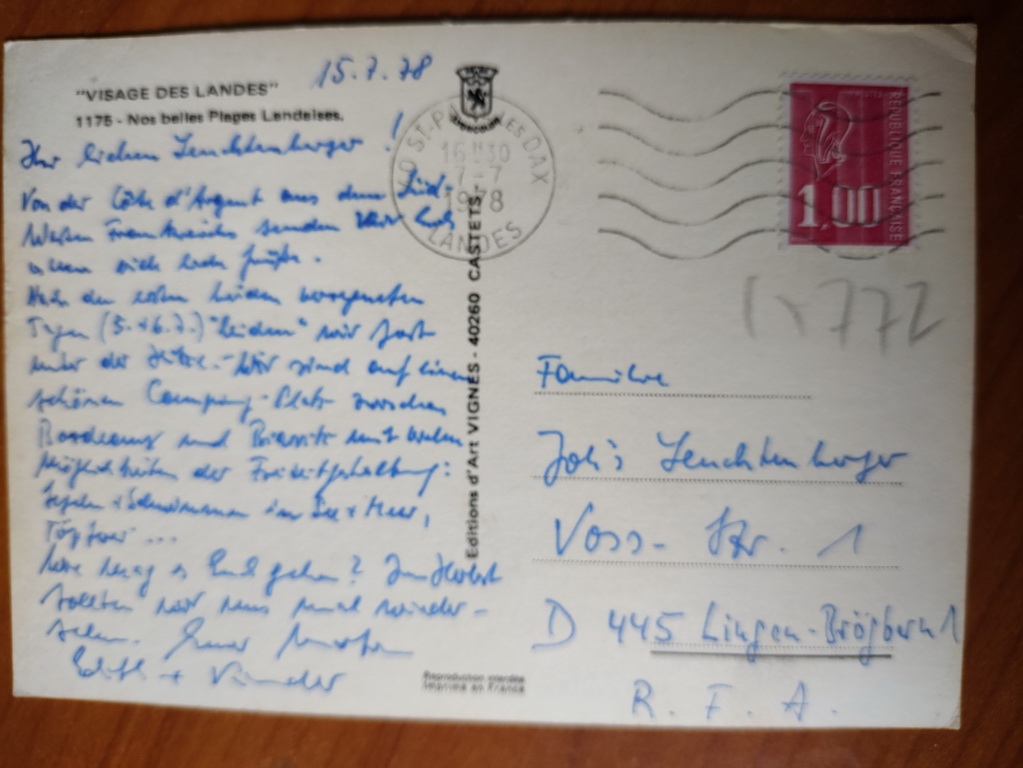 "VISAGE DES LANDES"
1175 - Nos belles Plages Landaises.
15.7.78
Ihr lieben Leuchtenberger!
Von der Côte d'Argent aus dem Süd-
Westen Frankreichs senden wir Euch
allen viele liebe Grüße.
Nach den ersten beiden verregneten
Tagen (5.+6.7.) "leiden" wir fast
unter der Hitze. - Wir sind auf einem
schönen Camping-Platz zwischen
Bordeaux und Biarritz mit vielen
Möglichkeiten der Freizeitgestaltung:
Segeln + Schwimmen im See + Meer,
Töpfern ...
Wie mag es Euch gehen? Im Herbst
sollten wir uns mal wieder-
sehen. Eure
Edith + Kinder
Editions d'Art VIGNES - 40260 CASTETS
40 ST-P LES DAX
16 H 30
7 - 7
1978
LANDES
REPUBLIQUE FRANÇAISE
1,00
772
Familie
Leuchtenberger
Voss-Str. 1
D 445 Lingen-Brögbern 1
R. F. A.
Reproduction interdite
Imprimé en France